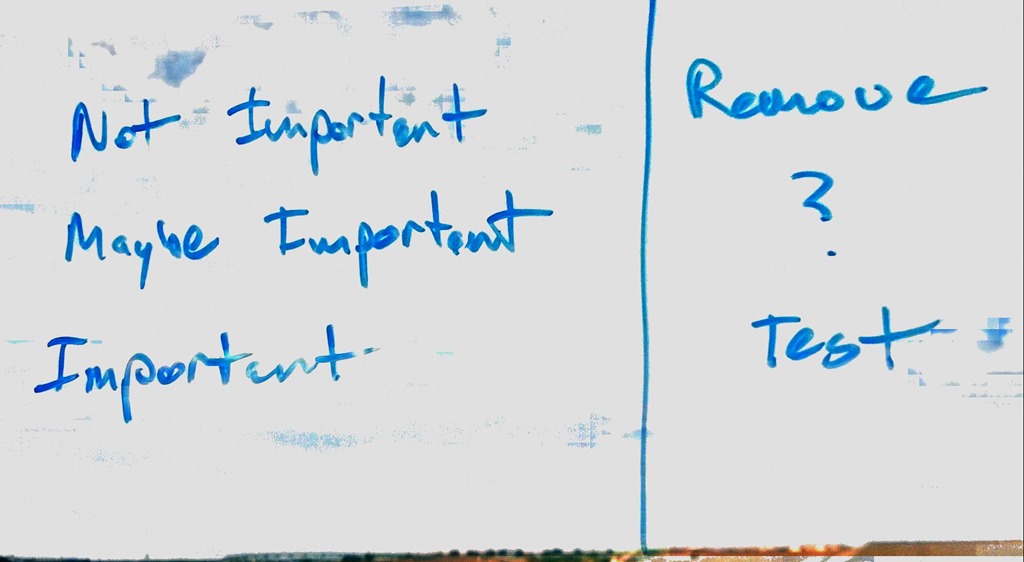 Not Important
Maybe Important
Important
Remove
?
Test